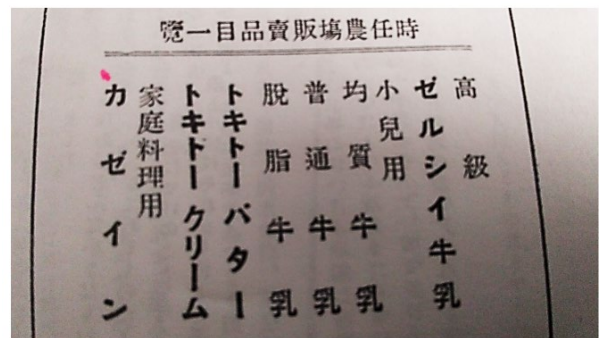 時任農塲販賣品目一覽
高級
ゼルシイ牛乳
小兒用
均質牛乳
普通牛乳
脫脂牛乳
トキトーバター
トキトークリーム
家庭料理用
カゼイン